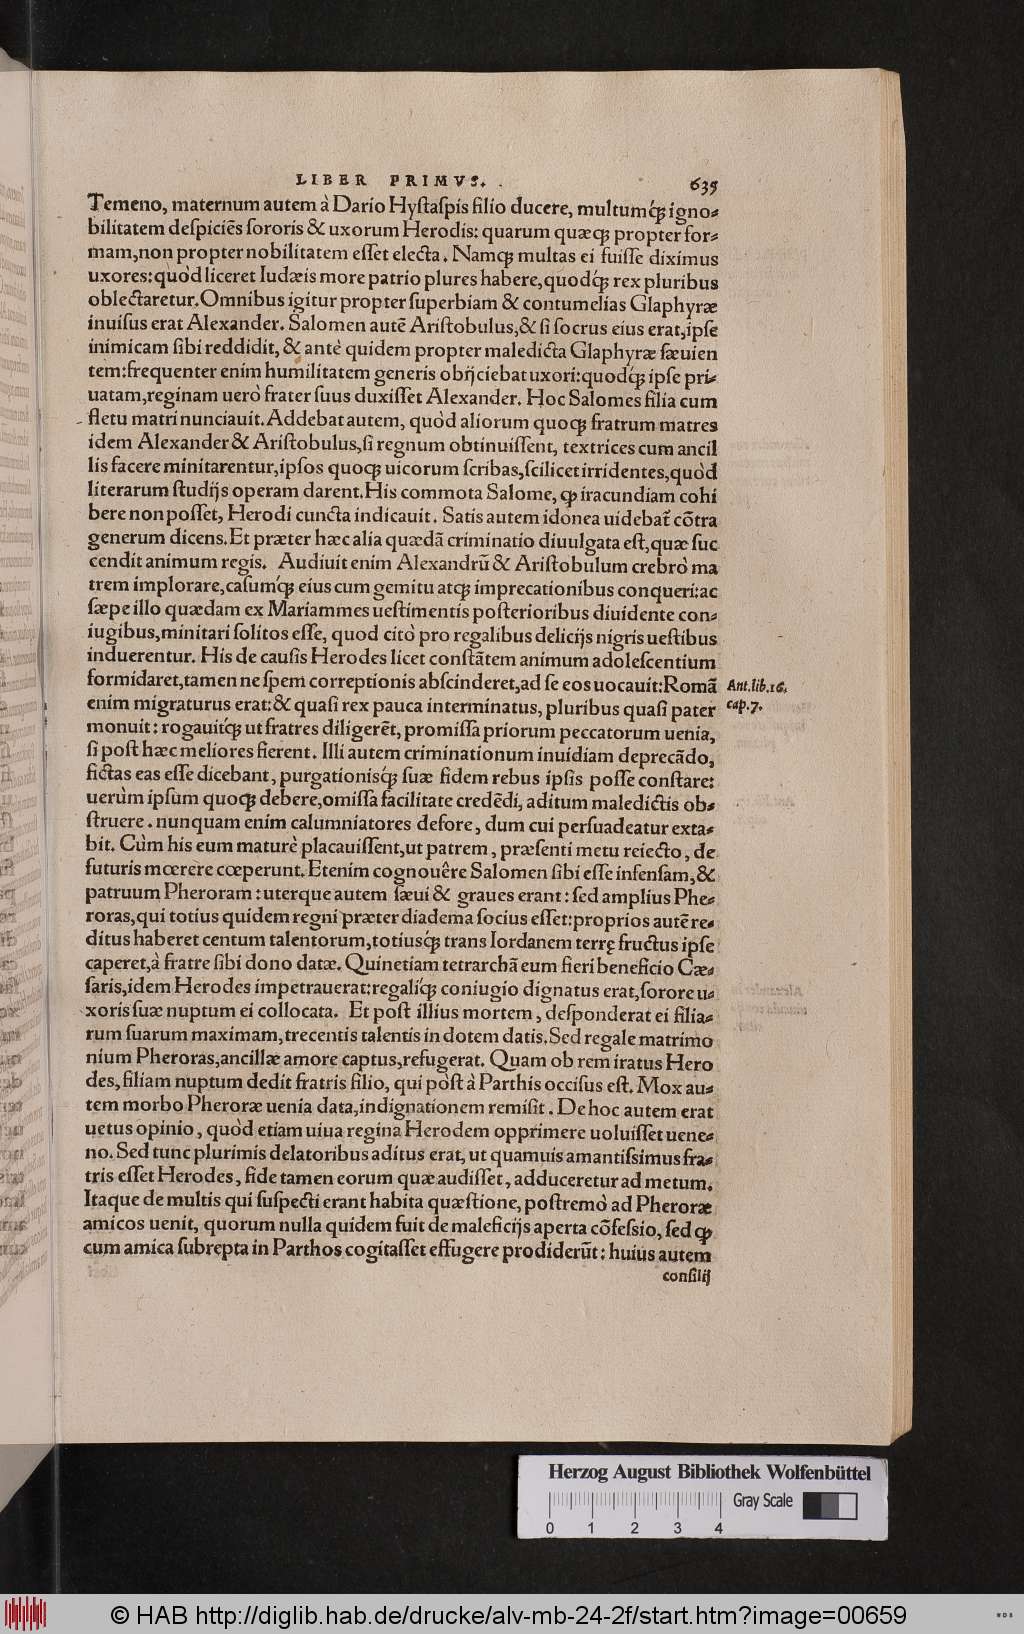 LIBER PRIMVS. 635
Temeno, maternum autem à Dario Hyſtaſpis filio ducere, multumq́ꝫ igno⸗
bilitatem deſpiciẽs ſororis & uxorum Herodis: quarum quæqꝫ propter for⸗
mam,non propter nobilitatem eſſet electa. Namqꝫ multas ei fuiſſe diximus
uxores:quòd liceret Iudæis more patrio plures habere,quodq́ꝫ rex pluribus
oblectaretur.Omnibus igitur propter ſuperbiam & contumelias Glaphyræ
inuiſus erat Alexander. Salomen autẽ Ariſtobulus,& ſi ſocrus eius erat,ipſe
inimicam ſibi reddidit, & antè quidem propter maledicta Glaphyræ ſæuien
tem:frequenter enim humilitatem generis obijciebat uxori:quodq́ꝫ ipſe pri⸗
uatam,reginam uerò frater ſuus duxiſſet Alexander. Hoc Salomes filia cum
fletu matri nunciauit.Addebat autem, quòd aliorum quoqꝫ fratrum matres
idem Alexander & Ariſtobulus,ſi regnum obtinuiſſent, textrices cum ancil
lis facere minitarentur,ipſos quoqꝫ uicorum ſcribas,ſcilicet irridentes,quòd
literarum ſtudijs operam darent.His commota Salome, ꝙ iracundiam cohi
bere non poſſet, Herodi cuncta indicauit. Satis autem idonea uidebat᷑ cõtra
generum dicens.Et præter hæc alia quædã criminatio diuulgata eſt,quæ ſuc
cendit animum regis. Audiuit enim Alexandrũ & Ariſtobulum crebrò ma
trem implorare,caſumq́ꝫ eius cum gemitu atqꝫ imprecationibus conqueri:ac
ſæpe illo quædam ex Mariammes ueſtimentis poſterioribus diuidente con⸗
iugibus,minitari ſolitos eſſe, quod citò pro regalibus delicijs nigris ueſtibus
induerentur. His de cauſis Herodes licet conſtãtem animum adoleſcentium
formidaret,tamen ne ſpem correptionis abſcinderet,ad ſe eos uocauit:Romã
Ant.lib.16.
enim migraturus erat:& quaſi rex pauca interminatus, pluribus quaſi pater
cap.7.
monuit: rogauitq́ꝫ ut fratres diligerẽt, promiſſa priorum peccatorum uenia,
ſi poſt hæc meliores fierent. Illi autem criminationum inuidiam deprecãdo,
fictas eas eſſe dicebant, purgationisq́ꝫ ſuæ fidem rebus ipſis poſſe conſtare:
uerùm ipſum quoqꝫ debere,omiſſa facilitate credẽdi, aditum maledictis ob⸗
ſtruere. nunquam enim calumniatores defore, dum cui perſuadeatur exta⸗
bit. Cùm his eum maturè placauiſſent,ut patrem, præſenti metu reiecto, de
futuris mœrere cœperunt.Etenim cognouêre Salomen ſibi eſſe infenſam,&
patruum Pheroram: uterque autem ſæui & graues erant: ſed amplius Phe⸗
roras,qui totius quidem regni præter diadema ſocius eſſet:proprios autẽ re⸗
ditus haberet centum talentorum,totiusq́ꝫ trans Iordanem terrę fructus ipſe
caperet,à fratre ſibi dono datæ. Quinetiam tetrarchã eum fieri beneficio Cæ⸗
ſaris,idem Herodes impetrauerat:regaliq́ꝫ coniugio dignatus erat,ſorore u⸗
xoris ſuæ nuptum ei collocata. Et poſt illius mortem, deſponderat ei filia⸗
rum ſuarum maximam,trecentis talentis in dotem datis.Sed regale matrimo
nium Pheroras,ancillæ amore captus,refugerat. Quam ob rem iratus Hero
des,filiam nuptum dedit fratris filio, qui pòſt à Parthis occiſus eſt. Mox au⸗
tem morbo Pheroræ uenia data,indignationem remiſit. De hoc autem erat
uetus opinio, quòd etiam uiua regina Herodem opprimere uoluiſſet uene⸗
no. Sed tunc plurimis delatoribus aditus erat, ut quamuis amantiſsimus fra⸗
tris eſſet Herodes, fide tamen eorum quæ audiſſet, adduceretur ad metum.
Itaque de multis qui ſuſpecti erant habita quæſtione, poſtremò ad Pheroræ
amicos uenit, quorum nulla quidem fuit de maleficijs aperta cõfeſsio, ſed ꝙ
cum amica ſubrepta in Parthos cogitaſſet effugere prodiderũt: huius autem
conſilij
Herzog August Bibliothek Wolfenbüttel
Gray Scale
0 1 2 3 4
© HAB http://diglib.hab.de/drucke/alv-mb-24-2f/start.htm?image=00659